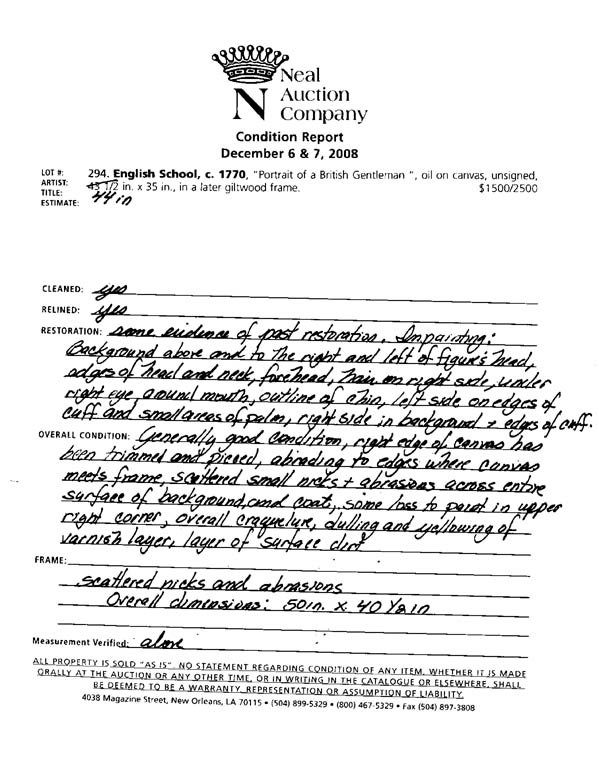 Neal
N Auction
Company
Condition Report
December 6 & 7, 2008
LOT #: 294. English School, c. 1770, "Portrait of a British Gentleman ", oil on canvas, unsigned,
ARTIST: 43 1/2 in. x 35 in., in a later giltwood frame. $1500/2500
TITLE: 44 in
ESTIMATE:
CLEANED: yes
RELINED: yes
RESTORATION: some evidence of past restoration. Inpainting:
Background above and to the right and left of figure's head,
edges of head and neck, forehead, hair on right side, under
right eye, around mouth, outline of chin, left side on edges of
cuff and small areas of palm, right side in background + edges of cuff.
OVERALL CONDITION: Generally good condition, right edge of canvas has
been trimmed and pieced, abrading to edges where canvas
meets frame, scattered small nicks + abrasions across entire
surface of background and coat, some loss to paint in upper
right corner, overall craquelure, dulling and yellowing of
varnish layer, layer of surface dirt
FRAME:
scattered nicks and abrasions
Overall dimensions: 50in. x 40 1/2 in
Measurement Verified: above
ALL PROPERTY IS SOLD "AS IS". NO STATEMENT REGARDING CONDITION OF ANY ITEM, WHETHER IT IS MADE
ORALLY AT THE AUCTION OR ANY OTHER TIME, OR IN WRITING IN THE CATALOGUE OR ELSEWHERE, SHALL
BE DEEMED TO BE A WARRANTY, REPRESENTATION OR ASSUMPTION OF LIABILITY.
4038 Magazine Street, New Orleans, LA 70115 • (504) 899-5329 • (800) 467-5329 • Fax (504) 897-3808